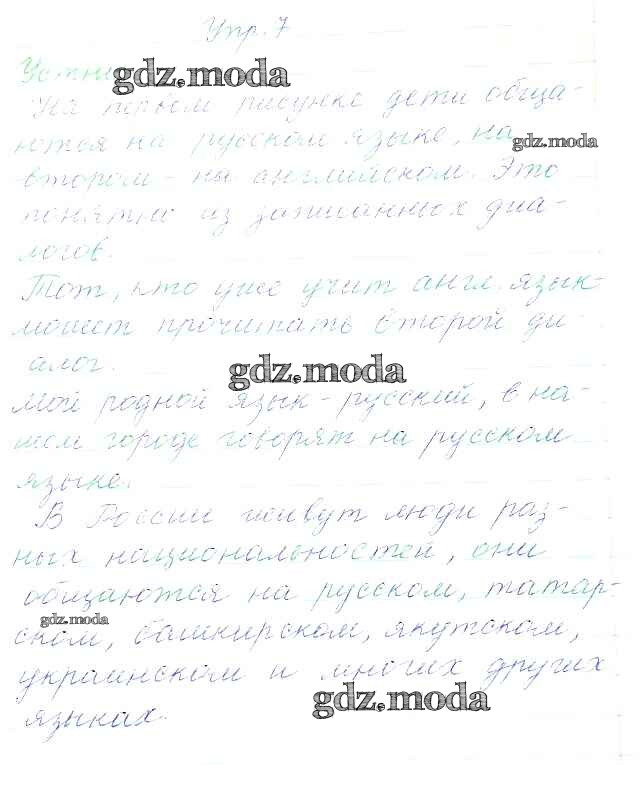 Упр. 7
Устно gdz.moda
На первом рисунке дети обща-
ются на русском языке, на
gdz.moda
втором - на английском. Это
понятно из записанных диа-
логов.
Тот, кто уже учит англ. язык-
может прочитать второй ди-
алог.
gdz.moda
Мой родной язык - русский, в на-
шем городе говорят на русском
языке.
В России живут люди раз-
ных национальностей, они
общаются на русском, татар-
gdz.moda
ском, башкирском, якутском,
украинском и многих других
gdz.moda
языках.